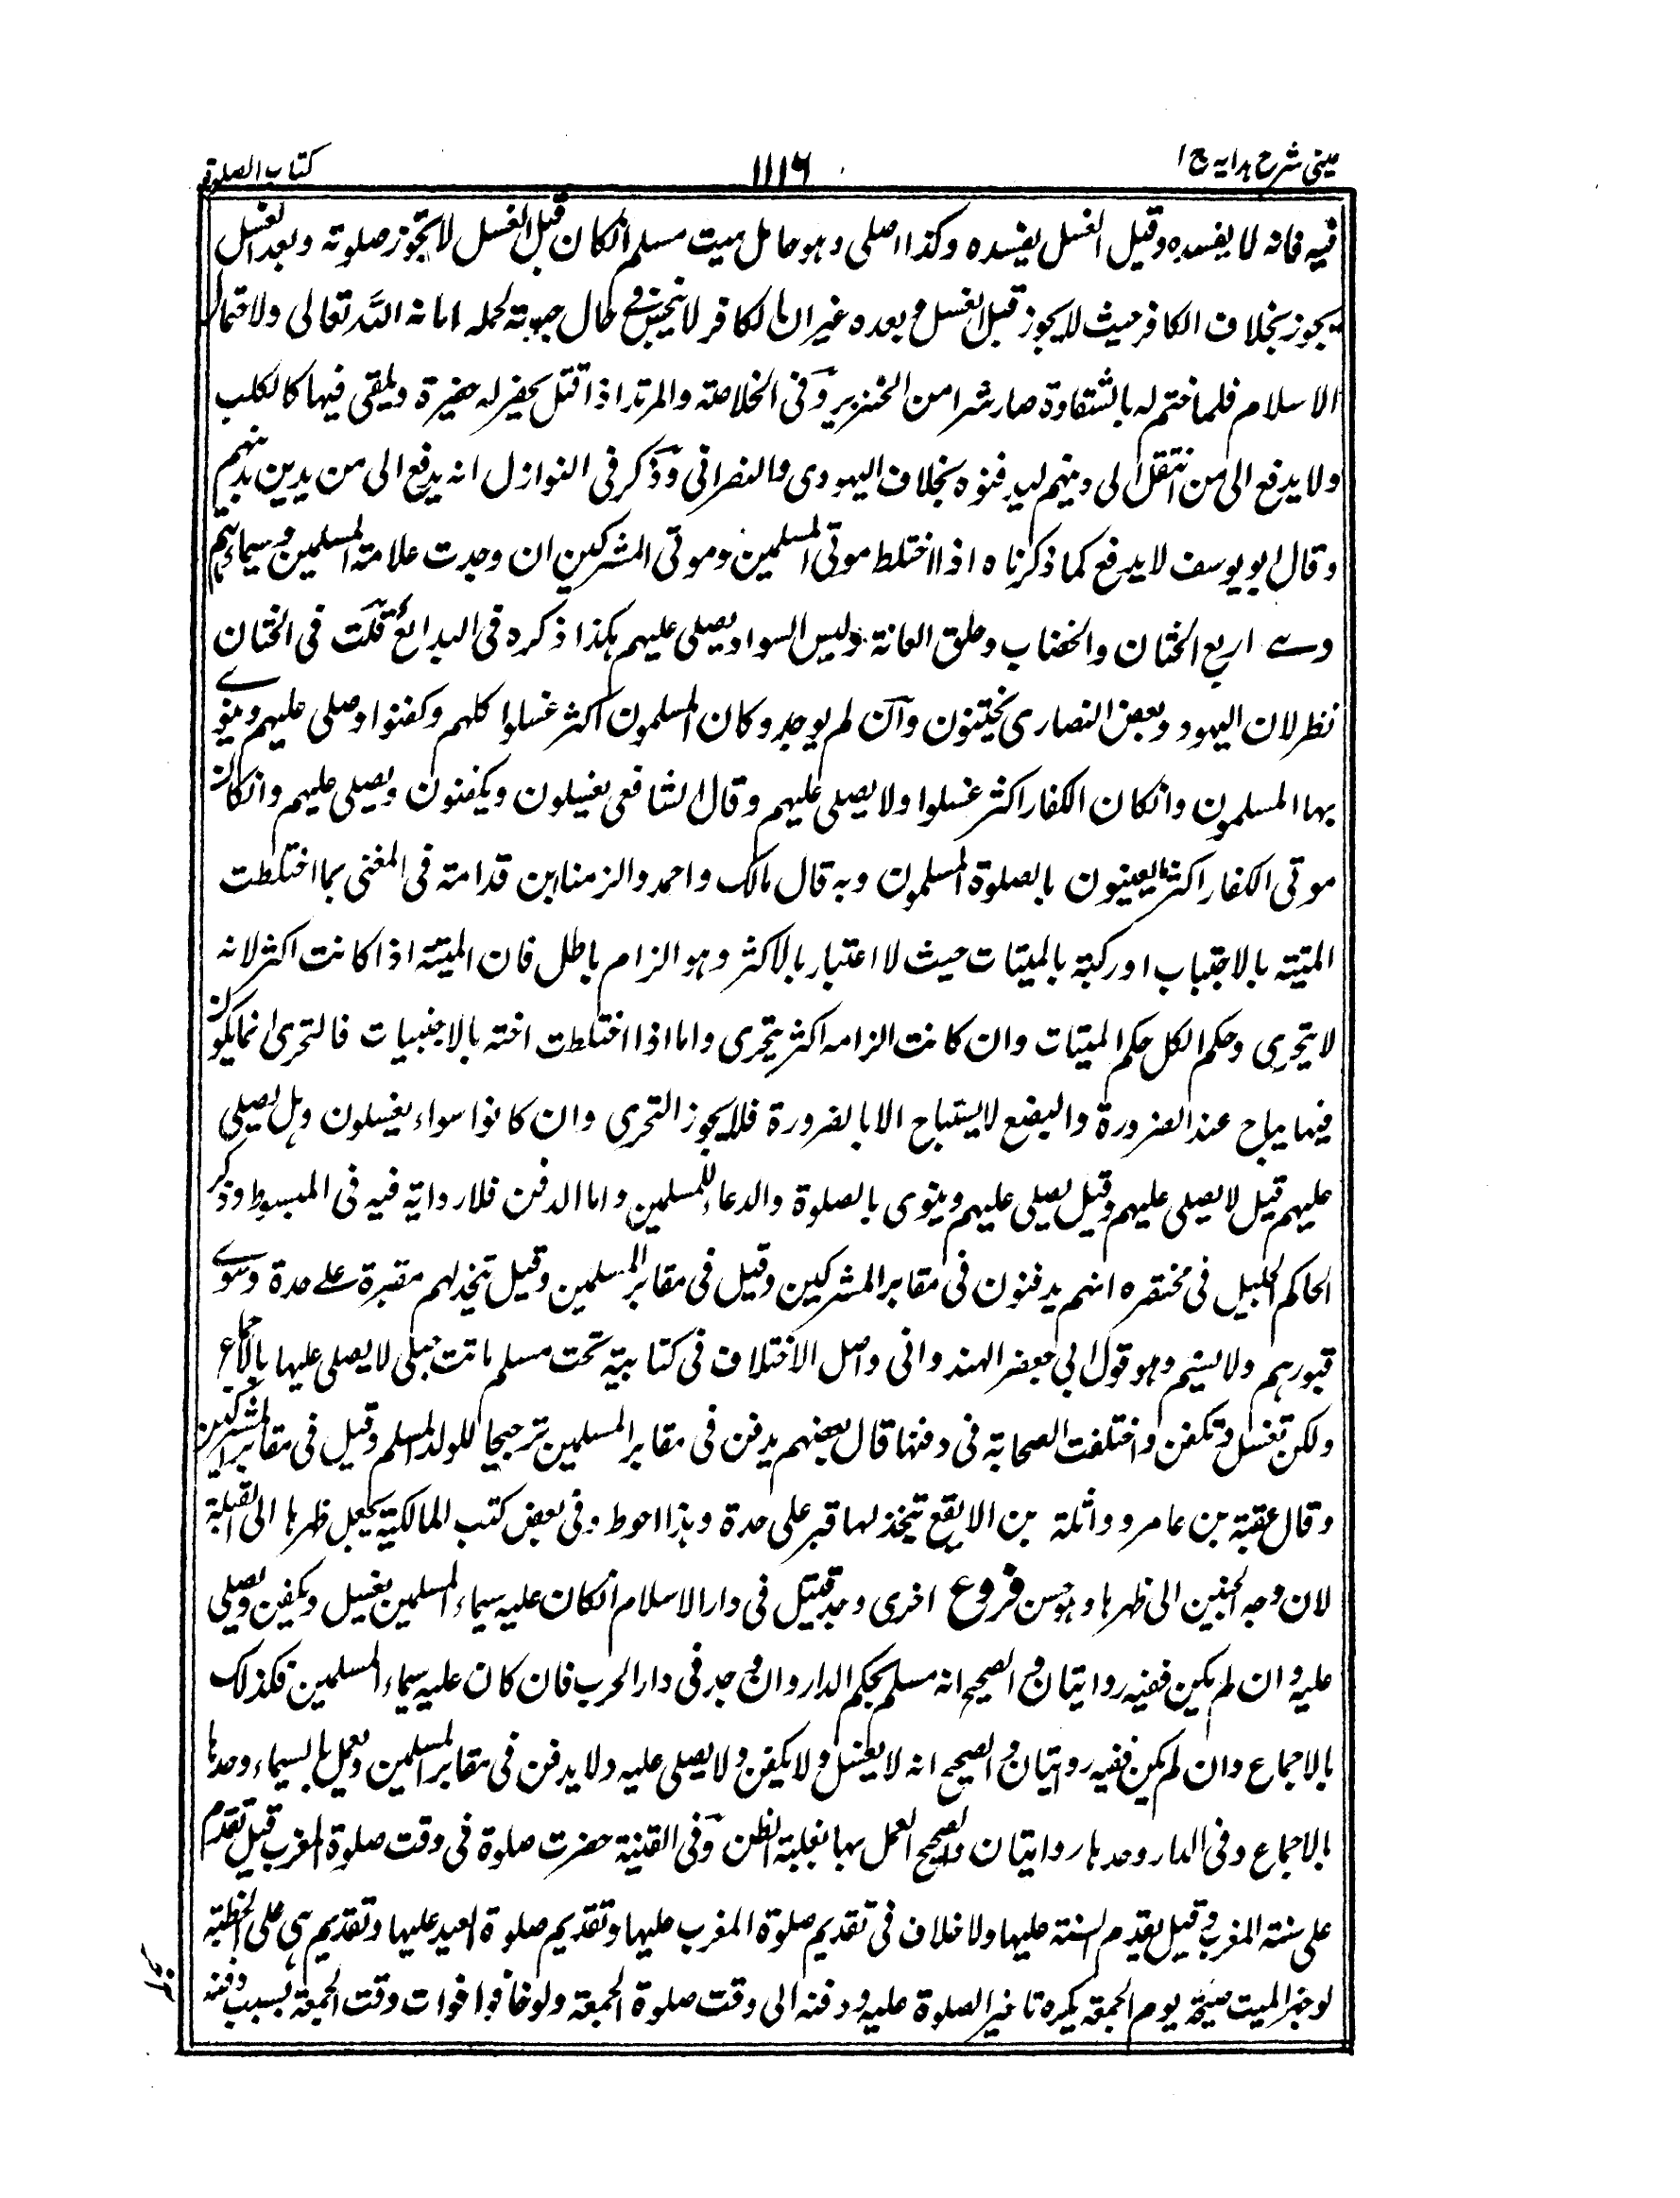 عینی شرح ہدایہ ج ا
١١١٦
کتاب الصلوة
فیہ فانہ لا یفسدہ وقیل الغسل یفسدہ وکذا اصلی وہو حامل میت مسلم انکان قبل الغسل لا تجوز صلوتہ وبعد الغسل
یجوز بخلاف الکافر حیث لا یجوز قبل الغسل وبعدہ غیر ان الکافر لا ینجس فی حال حیوتہ لحملہ امانة اللہ تعالی ولاحتمال
الاسلام فلما ختم لہ بالشقاوة صار شرا من الخنزیر وفی الخلاصة والمرتد اذا قتل یحفر لہ حفیرة ویلقی فیہا کالکلب
ولا یدفع الی من انتقل الی دینہم لیدفنوہ بخلاف الیہودی والنصرانی وذکر فی النوازل انہ یدفع الی من یدین بدینہم
وقال ابو یوسف لا یدفع کما ذکرناہ اذا اختلط موتی المسلمین وموتی المشرکین ان وجدت علامة المسلمین وسیماہم
وہے اربع الختان والخضاب وحلق العانة ولبس السواد یصلی علیہم ہکذا ذکرہ فی البدائع قلت فی الختان
نظر لان الیہود وبعض النصاری یختنون وان لم یوجد وکان المسلمون اکثر غسلوا کلہم وکفنوا وصلی علیہم وینوے
بہا المسلمون وانکان الکفار اکثر غسلوا ولا یصلی علیہم وقال الشافعی یغسلون ویکفنون ویصلی علیہم وانکان
موتی الکفار اکثر یعینون بالصلوة المسلمون وبہ قال مالک واحمد والزمنا ابن قدامة فی المغنی بما اختلطت
المیتة بالاجنباب او رکبة بالمیتات حیث لا اعتبار بالاکثر وہو الزام باطل فان المیتة اذا کانت اکثر لانہ
لا یتحری وحکم الکل حکم المیتات وان کانت الزامہ اکثر یتحری واما اذا اختلطت اختہ بالاجنبیات فالتحری انما یکون
فیما یباح عند الضرورة والبضع لا یستباح الا بالضرورة فلا یجوز التحری وان کانوا سواء یغسلون وہل یصلی
علیہم قیل لا یصلی علیہم وقیل یصلی علیہم وینوی بالصلوة والدعاء للمسلمین واما الدفن فلا روایة فیہ فی المبسوط وذکر
الحاکم الجلیل فی مختصرہ انہم یدفنون فی مقابر المشرکین وقیل فی مقابر المسلمین وقیل تتخذ لہم مقبرة علے حدة وتسوے
قبورہم ولا یسنم وہو قول ابی جعفر الہندوانی واصل الاختلاف فی کتابیة تحت مسلم ماتت حبلی لا یصلی علیہا بالاجماع
ولکن تغسل وتکفن واختلفت الصحابة فی دفنہا قال بعضہم یدفن فی مقابر المسلمین ترجیحا للولد المسلم وقیل فی مقابر المشرکین
وقال عقبة بن عامر وواثلة بن الاسقع تتخذ لہا قبر علی حدة وہذا احوط وفی بعض کتب المالکیة یجعل ظہرہا الی القبلة
لان وجہ الجنین الی ظہرہا وہو حسن فروع اخری وجد قتیل فی دار الاسلام انکان علیہ سیماء المسلمین یغسل ویکفن ویصلی
علیہ وان لم یکن ففیہ روایتان والصحیح انہ مسلم بحکم الدار وان وجد فی دار الحرب فان کان علیہ سیماء المسلمین فکذلک
بالاجماع وان لم یکن ففیہ روایتان والصحیح انہ لا یغسل ولا یکفن ولا یصلی علیہ ولا یدفن فی مقابر المسلمین ویعمل بالسیماء وحدہا
بالاجماع وفی الدار وحدہا روایتان والصحیح العمل بہا بغلبة الظن وفی القنیة حضرت صلوة فی وقت صلوة المغرب قیل تقدم
علی سنة المغرب وقیل یقدم السنة علیہا ولا خلاف فی تقدیم صلوة المغرب علیہا وتقدیم صلوة العید علیہا وتقدیم ہی علی الخطبة
لو جہز المیت صبیحة یوم الجمعة یکرہ تاخیر الصلوة علیہ ودفنہ الی وقت صلوة الجمعة ولو خافوا فوات وقت الجمعة بسبب دفنہ